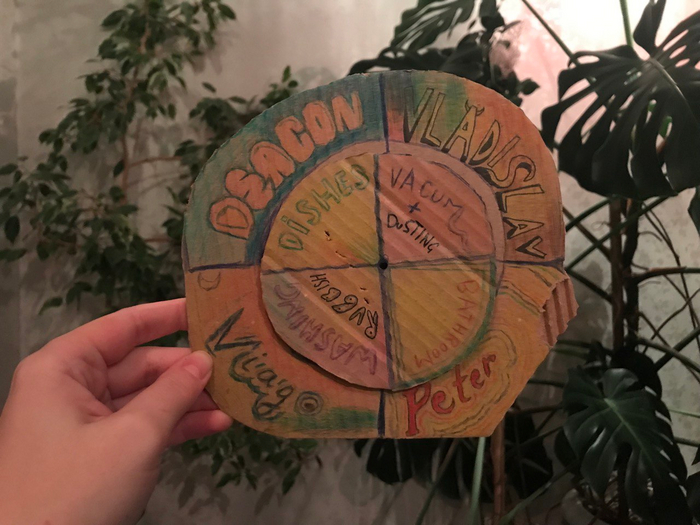 DEACON
VLADISLAV
DISHES
VACUM
+
DUSTING
RUBBISH
WASHING
BATHROOM
Viago
Peter